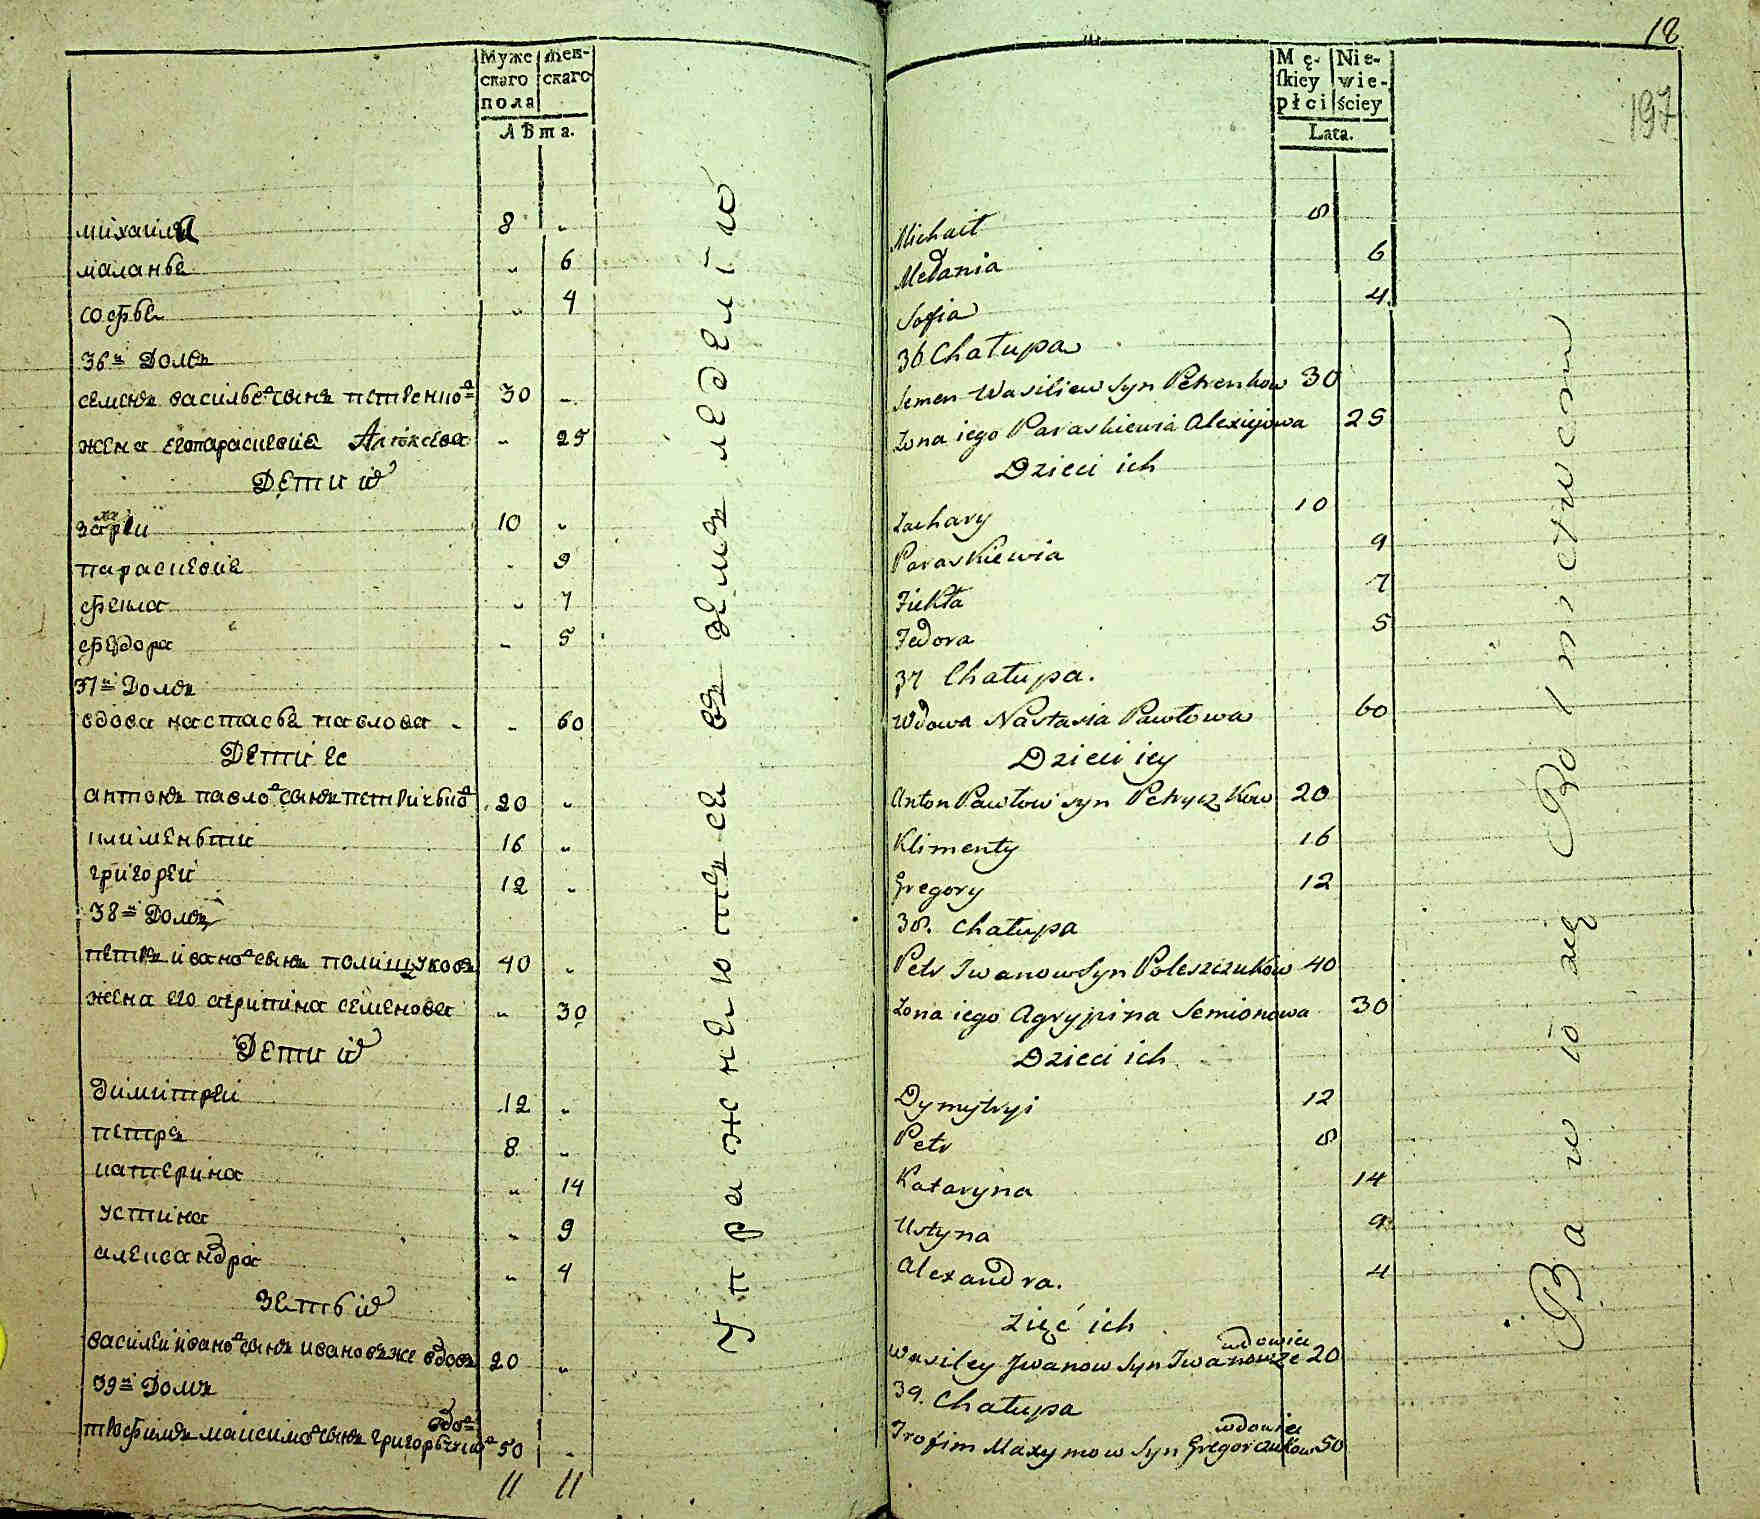 Муже
скаго
пола
Жен-
скаго
Лѣта.
михаила 8 „
маланья „ 6
софья „ 4
36й Домъ
семенъ васильевъ сынъ петренковъ 30 „
жена его параскевiя Алексѣева „ 25
Дети их
захарей 10 „
параскевiя „ 9
фекла „ 7
федора „ 5
37й Домъ
вдова настасья павлова „ 60
Дети ее
антонъ павловъ сынъ петричковъ 20 „
климентiй 16 „
григорей 12 „
38й Домъ
петръ ивановъ сынъ полищуковъ 40 „
жена его агрипина семенова „ 30
Дети их
димитрей 12 „
петръ 8 „
катерина „ 14
устина „ 9
александра „ 4
Зеть их
василей ивановъ сынъ ивановъ же вдовъ 20 „
39й Домъ
трофимъ максимовъ сынъ григорьчуковъ вдовъ 50 „
11 11
Упражнеютъся въ земледелiю
18
197
Mę-
skiey
płci
Nie-
wie-
ściey
Lata.
Michaił 8
Mełania 6
Sofia 4
36 Chałupa
Semen Wasiliew Syn Petrenkow 30
Zona iego Paraskiewia Alexiejowa 25
Dzieci ich
Zachary 10
Paraskiewia 9
Fiekła 7
Fedora 5
37 Chałupa.
Wdowa Nastasia Pawłowa 60
Dzieci iey
Anton Pawłow syn Petryczkow 20
Klimenty 16
Gregory 12
38. Chałupa
Petr Iwanow Syn Poleszczuków 40
Zona iego Agrypina Semionowa 30
Dzieci ich
Dymytryi 12
Petr 8
Kataryna 14
Ustyna 9
Alexandra. 4
Zięć ich
Wasiley Iwanow Syn Iwanowże wdowiec 20
39. Chałupa
Trofim Maxymow Syn Gregorczukow wdowiec 50
Bawią się Rolnictwem